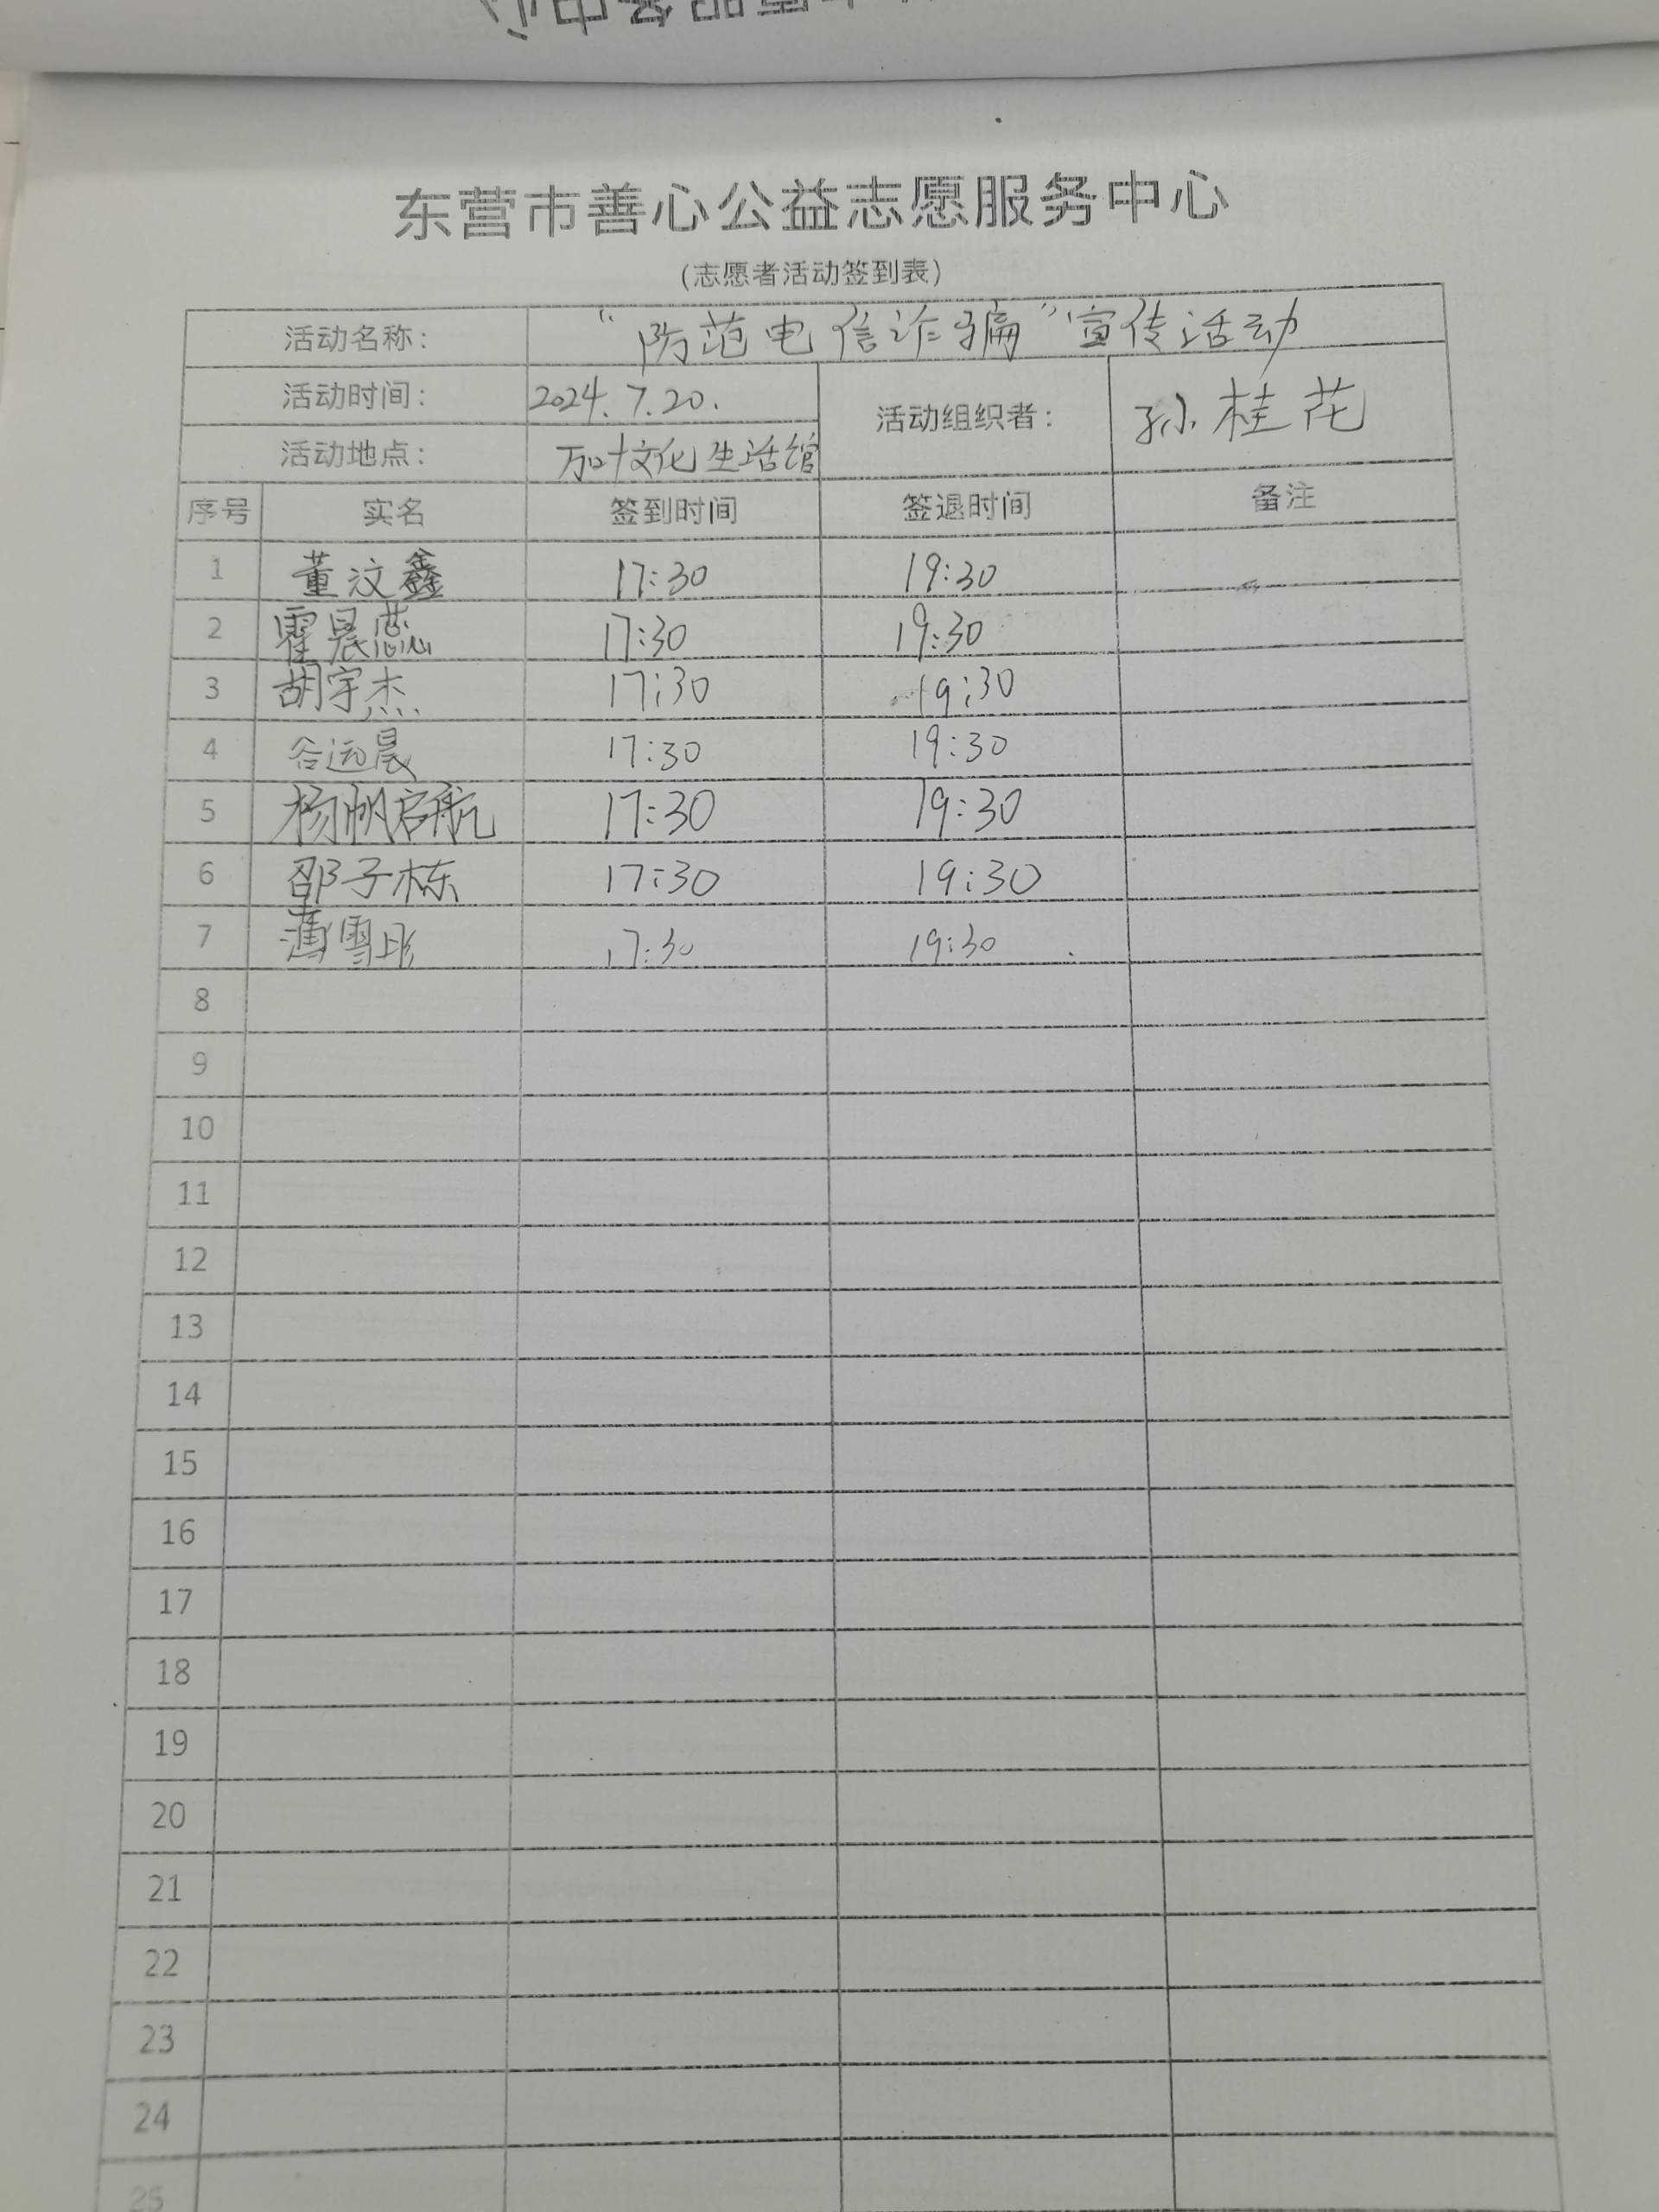 东营市善心公益志愿服务中心
(志愿者活动签到表)
活动名称: “防范电信诈骗”宣传活动
活动时间: 2024.7.20. 活动组织者: 孙桂花
活动地点: 文化生活馆
序号 实名 签到时间 签退时间 备注
1 董汶鑫 17:30 19:30
2 霍晨蕊 17:30 19:30
3 胡宇杰 17:30 19:30
4 谷远晨 17:30 19:30
5 杨帆启航 17:30 19:30
6 邵子栋 17:30 19:30
7 薄雪彤 17:30 19:30
8
9
10
11
12
13
14
15
16
17
18
19
20
21
22
23
24
25